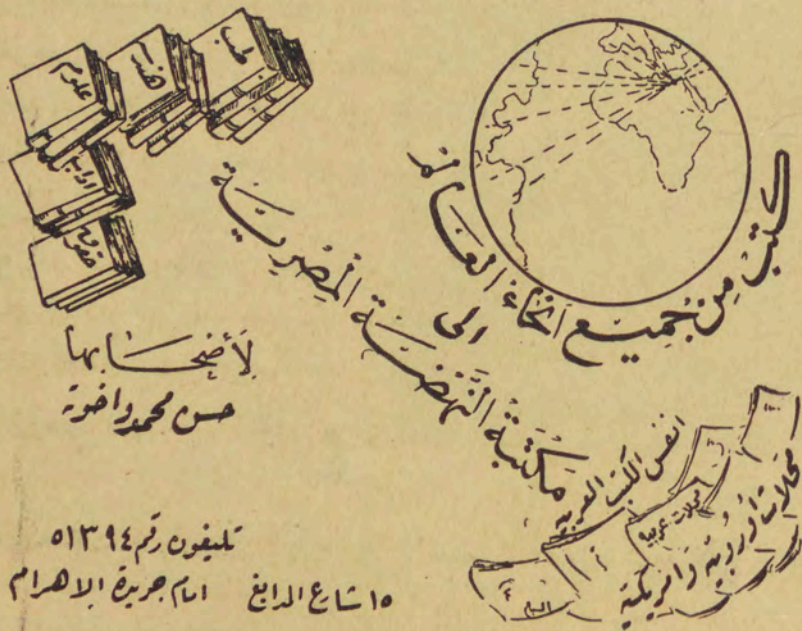 كتب من جميع انحاء العالم
الى
مكتبة النهضة المصرية
لأصحابها
حسن محمد واخوته
طب
هندسة
علوم
اداب
حقوق
انفس الكتب العربية
مجلات عربية
مجلات أوروبية وامريكية
تليفون رقم ٥١٣٩٤
١٥ شارع المدابغ امام جريدة الاهرام